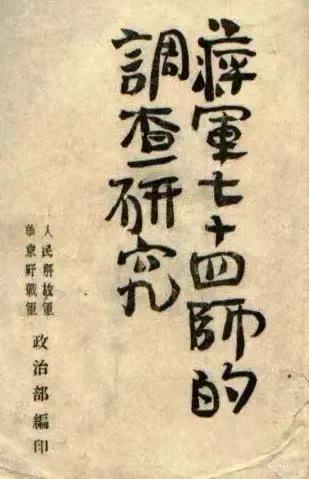 蔣軍七十四師的
調查研究
人民解放軍
華東野戰軍
政治部編印